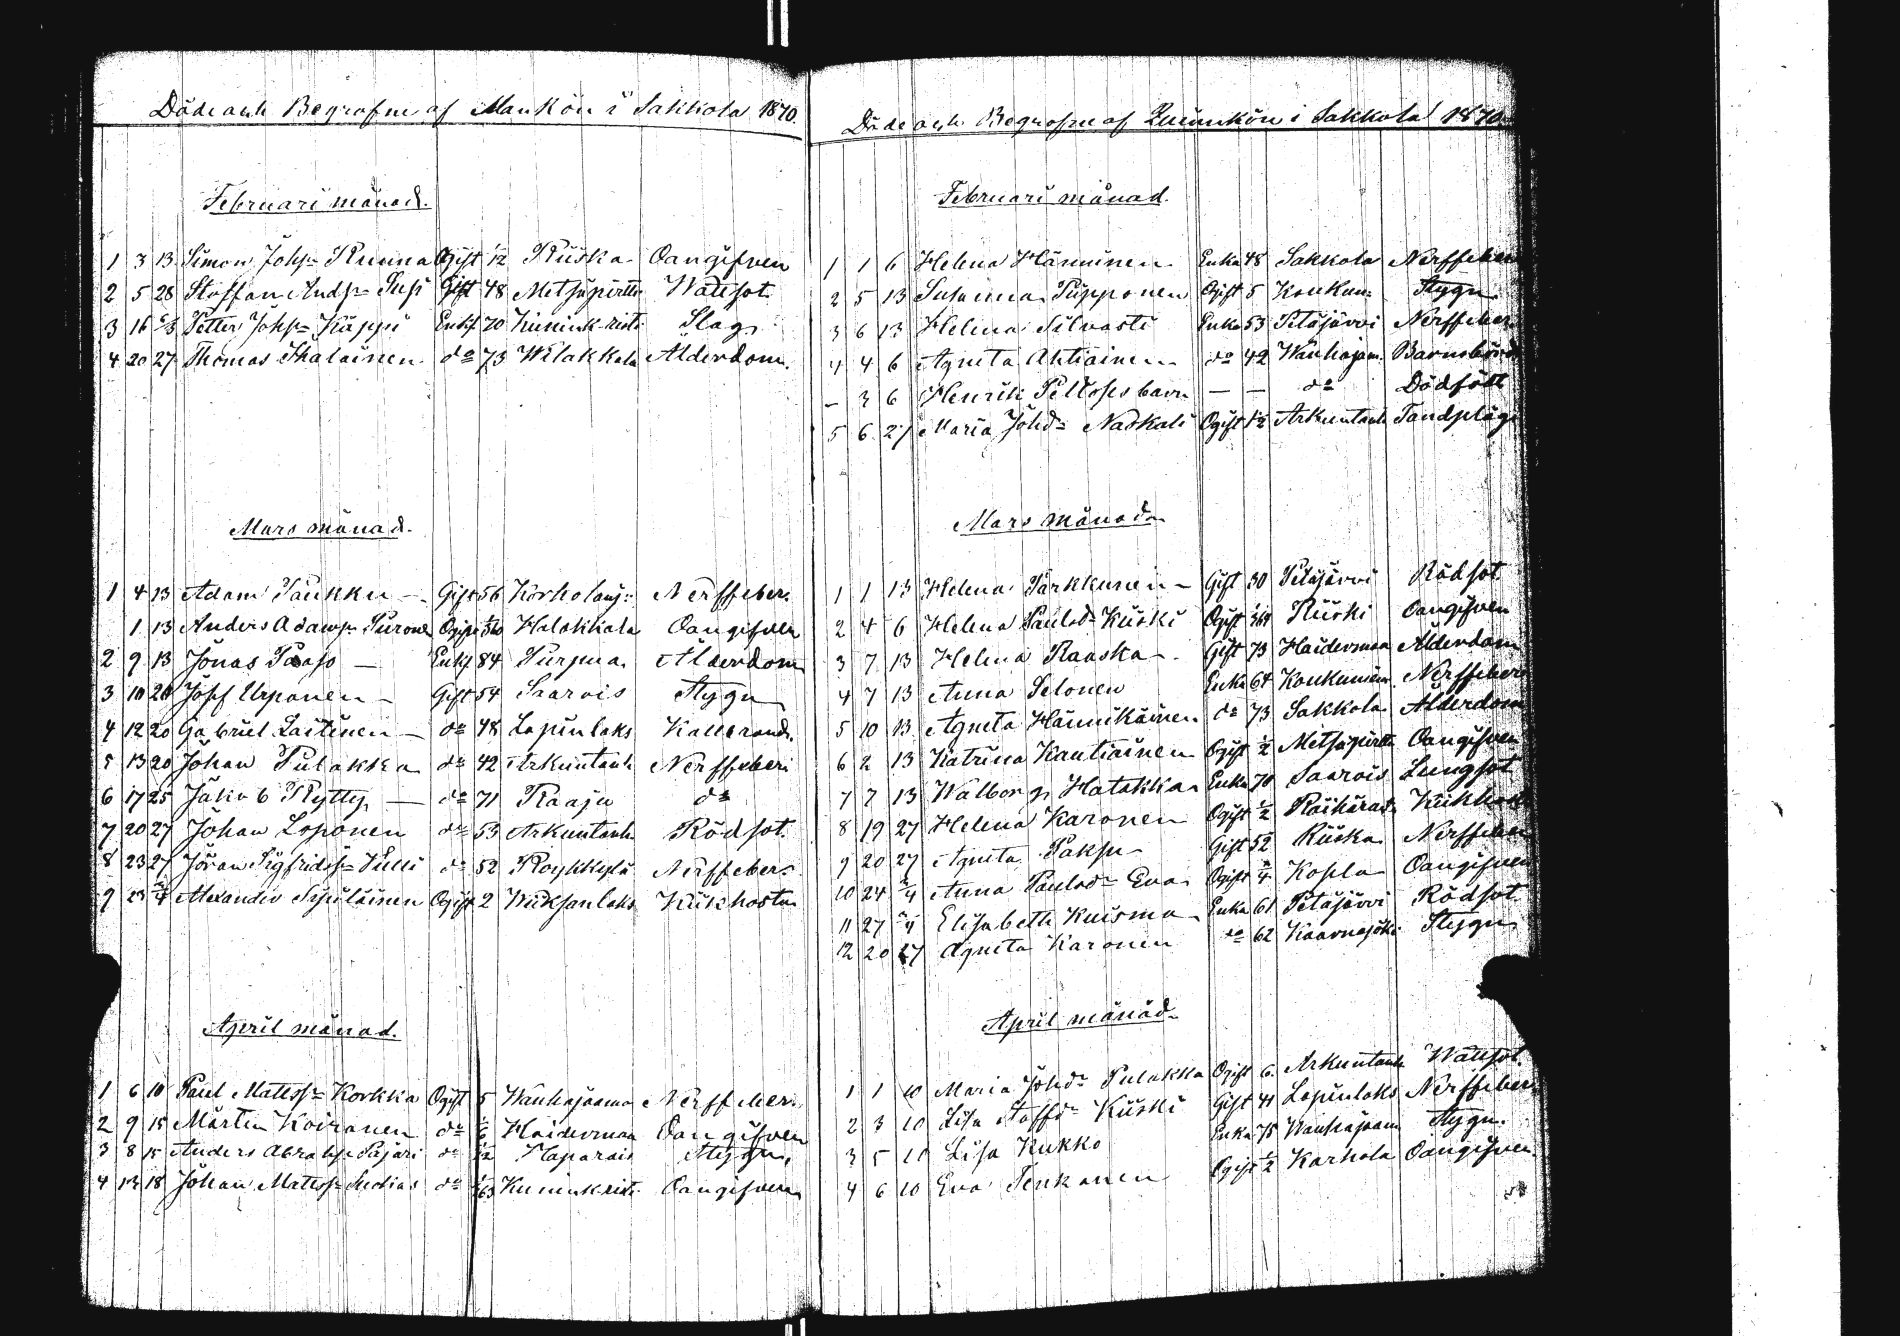 Döde och Begrafne af Mankön i Sakkola 1870.
Februari månad.
1 3 13 Simon Johss Runna Ogift 1/12 Riiska Oangifven
2 5 28 Staffan Andss Susi Gift 48 Metsäpirtti Wattsot
3 16 6/3 Petter Johss Käppi Enkl 70 Kiimink.risti Slag
4 20 27 Thomas Ihalainen do 73 Wilakkala Ålderdom.
Mars månad.
1 4 13 Adam Paukku — Gift 56 Korholanj: Nerffeber.
1 13 Anders Adamss Puronen Ogift Halakkala Oangifven
2 9 13 Jonas Paaso — Enkl 84 Purpua Ålderdom
3 10 20 Josf Urponen — Gift 54 Saarois Stygn
4 12 20 Gabriel Laitinen — do 48 Lapinlaks Kallbrand.
5 13 20 Johan Pulakka do 42 Arkuntanh Nerffeber
6 17 25 Jakob Rytty — do 71 Raaju do
7 20 27 Johan Loponen do 53 Arkuntanh Rödsot.
8 23 27 Jöran Sigfridss Julli do 52 Röykkylä Nerffeber.
9 23 Alexander Sipiläinen Ogift 2 Wiiksanlaks Kikhosta
April månad.
1 6 10 Paul Matss Korkka Ogift 5 Wanhajaama Nerffeber.
2 9 15 Mårten Koiranen do 1/6 Haiderman Oangifven
3 8 15 Anders Abrahss Pajari do 1/12 Haparais Stygn,
4 12 18 Johan Matss Suotias do Kiiminkristi Oangifven
Döde och Begrafne af Qvinnkön i Sakkola 1870.
Februari månad.
1 1 6 Helena Hänninen Enka 48 Sakkola Nerffeber
2 5 13 Susanna Pipponen Ogift 5 Koukun: Stygn
3 6 13 Helena Silvasti Enka 53 Petäjärvi Nerffeber
4 4 6 Agneta Ahtiainen do 42 Wanhajam. Barnsbörd
— 3 6 Henrik Peltoss barn — — do Dödfödt
5 6 27 Maria Johdr Naskali Ogift 1½ Arkuntanh Tandplåg
Mars månad
1 1 13 Helena Parkkunen — Gift 30 Petäjärvi Rödsot
2 4 6 Helena Paulsdr Kiiski Ogift Riiski Oangifven
3 7 13 Helena Raaska Gift 73 Haiderman Ålderdom
4 7 13 Anna Pelonen Enka 64 Koukuniem Nerffeber
5 10 13 Agneta Hännikäinen do 73 Sakkola Ålderdom
6 2 13 Katrina Kautiainen Ogift ½ Metsäpirtti Oangifven
7 7 13 Walborg Hatakka Enka 70 Saarois Lungsot
8 19 27 Helena Karonen Ogift ½ Räihäran Kikhosta
9 20 27 Agneta Paksu Gift 52 Riiska Nerffeber
10 24 Anna Paulsdr Eva Ogift Kosla Oangifven
11 27 Elisabeth Kuisma Enka 61 Petäjärvi Rödsot
12 20 27 Agneta Karonen do 62 Kaarnajoki Stygn
April månad
1 1 10 Maria Johdr Pulakka Ogift 6 Arkuntanh Wattsot.
2 3 10 Lisa Staffdr Kiiski Gift 41 Lapinlaks Nerffeber
3 5 10 Lisa Kukko Enka 75 Wanhajaam Stygn.
4 6 10 Eva Tenkanen Ogift ½ Karhola Oangifven.